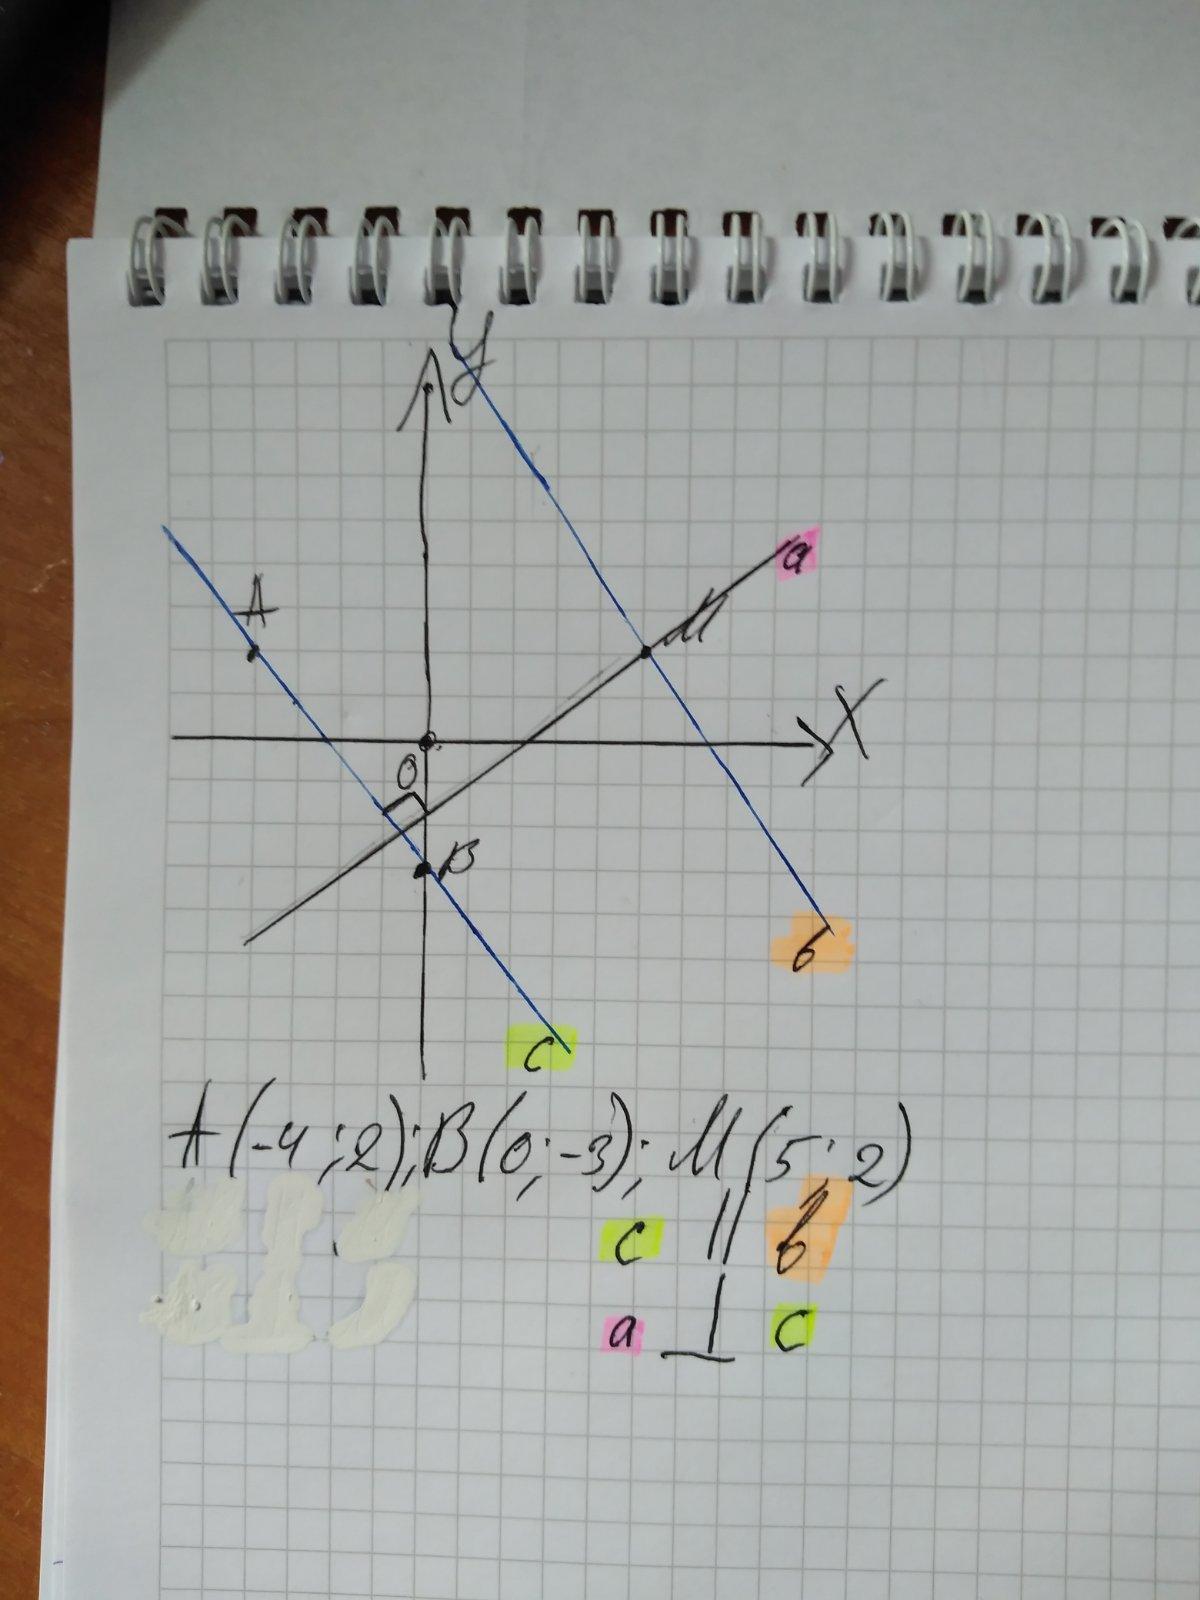 У
а
М
А
Х
О
В
б
с
А(-4;2);В(0;-3); М(5;2)
с || b
а ⊥ с